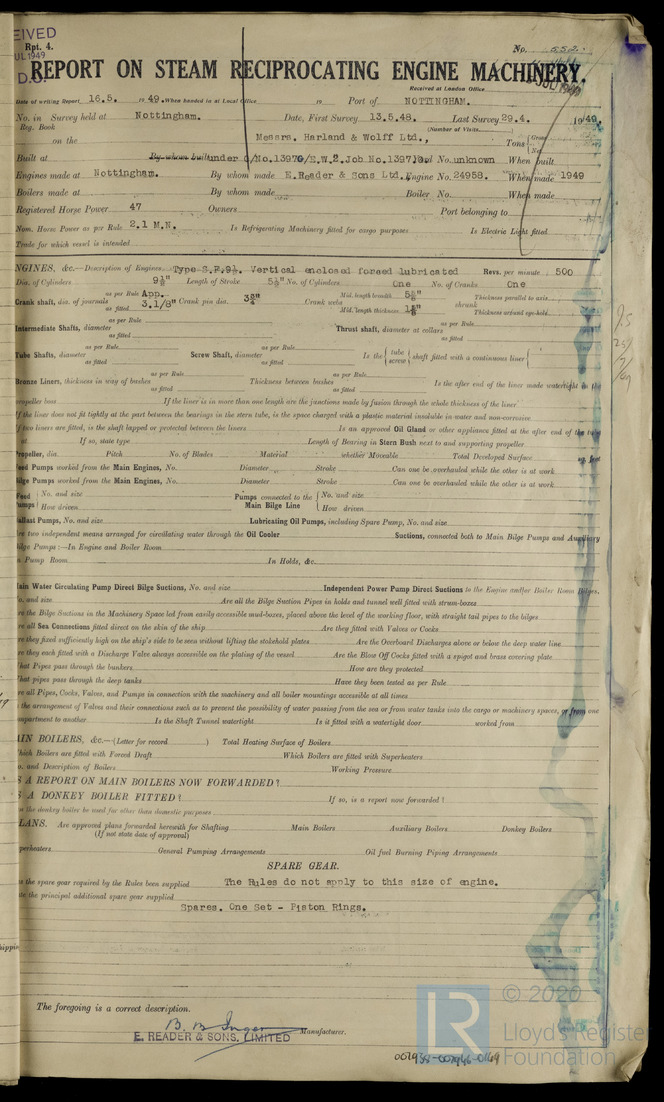 EIVED
Rpt. 4.
UL 1949
D.O.
No. 652.
REPORT ON STEAM RECIPROCATING ENGINE MACHINERY.
Received at London Office
Date of writing Report 16.5. 1949. When handed in at Local Office 19 Port of NOTTINGHAM.
No. in Survey held at Nottingham. Date, First Survey 13.5.48. Last Survey 29.4. 1949.
Reg. Book (Number of Visits
on the Messrs. Harland & Wolff Ltd., Tons { Gross Net
Built at By whom built under O/No.13970/E.W.2.Job No.1397 Yard No. unknown When built
Engines made at Nottingham. By whom made E.Reader & Sons Ltd. Engine No. 24958. When made 1949
Boilers made at By whom made Boiler No. When made
Registered Horse Power 47 Owners Port belonging to
Nom. Horse Power as per Rule 2.1 M.N. Is Refrigerating Machinery fitted for cargo purposes Is Electric Light fitted
Trade for which vessel is intended
NGINES, &c.—Description of Engines Type S.F.9½. Vertical enclosed forced lubricated Revs. per minute 500
Dia. of Cylinders 9½" Length of Stroke 5½" No. of Cylinders One No. of Cranks One
Crank shaft, dia. of journals as per Rule App. as fitted 3.1/8" Crank pin dia. Crank webs Mid. length breadth Mid. length thickness shrunk Thickness parallel to axis Thickness around eye-hole
Intermediate Shafts, diameter as per Rule as fitted Thrust shaft, diameter at collars as per Rule as fitted
Tube Shafts, diameter as per Rule as fitted Screw Shaft, diameter as per Rule as fitted Is the { tube screw } shaft fitted with a continuous liner {
Bronze Liners, thickness in way of bushes as per Rule as fitted Thickness between bushes as per Rule as fitted Is the after end of the liner made watertight in the
propeller boss If the liner is in more than one length are the junctions made by fusion through the whole thickness of the liner
If the liner does not fit tightly at the part between the bearings in the stern tube, is the space charged with a plastic material insoluble in water and non-corrosive
If two liners are fitted, is the shaft lapped or protected between the liners Is an approved Oil Gland or other appliance fitted at the after end of the tube
If so, state type Length of Bearing in Stern Bush next to and supporting propeller
Propeller, dia. Pitch No. of Blades Material whether Moveable Total Developed Surface sq. feet
Feed Pumps worked from the Main Engines, No. Diameter Stroke Can one be overhauled while the other is at work
Bilge Pumps worked from the Main Engines, No. Diameter Stroke Can one be overhauled while the other is at work
Feed Pumps { No. and size How driven Pumps connected to the Main Bilge Line { No. and size How driven
Ballast Pumps, No. and size Lubricating Oil Pumps, including Spare Pump, No. and size
Are two independent means arranged for circulating water through the Oil Cooler Suctions, connected both to Main Bilge Pumps and Auxiliary
Bilge Pumps:—In Engine and Boiler Room
n Pump Room In Holds, &c.
Main Water Circulating Pump Direct Bilge Suctions, No. and size Independent Power Pump Direct Suctions to the Engine and/or Boiler Room Bilges,
No. and size Are all the Bilge Suction Pipes in holds and tunnel well fitted with strum-boxes
re the Bilge Suctions in the Machinery Space led from easily accessible mud-boxes, placed above the level of the working floor, with straight tail pipes to the bilges
re all Sea Connections fitted direct on the skin of the ship Are they fitted with Valves or Cocks
re they fixed sufficiently high on the ship's side to be seen without lifting the stokehold plates Are the Overboard Discharges above or below the deep water line
re they each fitted with a Discharge Valve always accessible on the plating of the vessel Are the Blow Off Cocks fitted with a spigot and brass covering plate
hat Pipes pass through the bunkers How are they protected
hat pipes pass through the deep tanks Have they been tested as per Rule
re all Pipes, Cocks, Valves, and Pumps in connection with the machinery and all boiler mountings accessible at all times
the arrangement of Valves and their connections such as to prevent the possibility of water passing from the sea or from water tanks into the cargo or machinery spaces, or from one
ompartment to another Is the Shaft Tunnel watertight Is it fitted with a watertight door worked from
AIN BOILERS, &c.—(Letter for record ) Total Heating Surface of Boilers
hich Boilers are fitted with Forced Draft Which Boilers are fitted with Superheaters
o. and Description of Boilers Working Pressure
S A REPORT ON MAIN BOILERS NOW FORWARDED?
S A DONKEY BOILER FITTED? If so, is a report now forwarded?
s the donkey boiler be used for other than domestic purposes
LANS. Are approved plans forwarded herewith for Shafting Main Boilers Auxiliary Boilers Donkey Boilers
(If not state date of approval)
uperheaters General Pumping Arrangements Oil fuel Burning Piping Arrangements
SPARE GEAR.
s the spare gear required by the Rules been supplied The Rules do not apply to this size of engine.
te the principal additional spare gear supplied
Spares. One Set - Piston Rings.
hippin
The foregoing is a correct description.
E. READER & SONS, LIMITED Manufacturer.
LR © 2020
Lloyd's Register
Foundation
002938-002946-0149